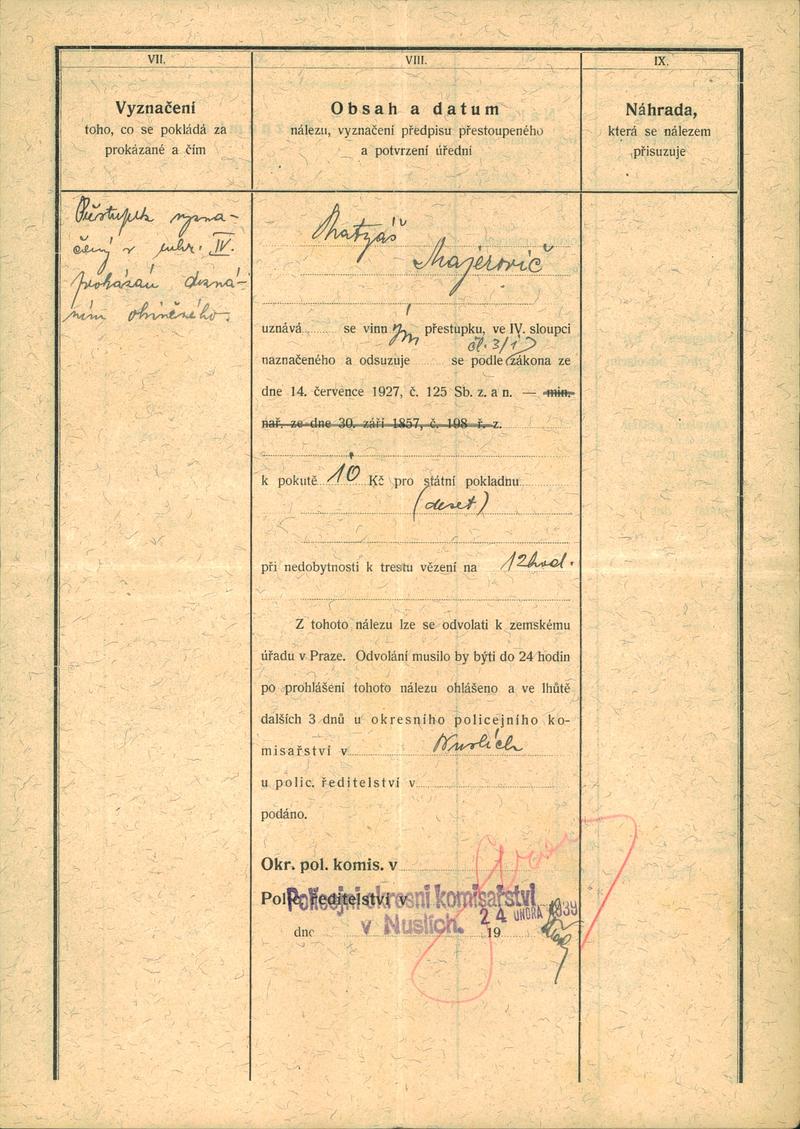 VII.
Vyznačení
toho, co se pokládá za
prokázané a čím
Přestupek vyzna-
čený v rubr. IV.
prokázán dozná-
ním obviněného.
VIII.
Obsah a datum
nálezu, vyznačení předpisu přestoupeného
a potvrzení úřední
Matyáš
Majerovič
uznává se vinným přestupku, ve IV. sloupci
čl. 3/1
naznačeného a odsuzuje se podle zákona ze
dne 14. července 1927, č. 125 Sb. z. a n. — min.
nař. ze dne 30. září 1857, č. 198 ř. z.
k pokutě 10 Kč pro státní pokladnu
(deset)
při nedobytnosti k trestu vězení na 12 hod.
Z tohoto nálezu lze se odvolati k zemskému
úřadu v Praze. Odvolání musilo by býti do 24 hodin
po prohlášení tohoto nálezu ohlášeno a ve lhůtě
dalších 3 dnů u okresního policejního ko-
misařství v Nuslích
u polic. ředitelství v
podáno.
Okr. pol. komis. v
Polic. ředitelství v
Policejní okresní komisařství
v Nuslích.
24 ÚNORA 1939
dne 19
IX.
Náhrada,
která se nálezem
přisuzuje